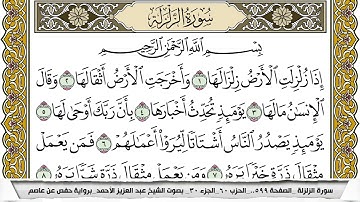 سُورَةُ الزَّلْزَلَةِ
بِسْمِ اللَّهِ الرَّحْمَٰنِ الرَّحِيمِ
إِذَا زُلْزِلَتِ الْأَرْضُ زِلْزَالَهَا ١ وَأَخْرَجَتِ الْأَرْضُ أَثْقَالَهَا ٢ وَقَالَ
الْإِنسَٰنُ مَا لَهَا ٣ يَوْمَئِذٍ تُحَدِّثُ أَخْبَارَهَا ٤ بِأَنَّ رَبَّكَ أَوْحَىٰ لَهَا ٥
يَوْمَئِذٍ يَصْدُرُ النَّاسُ أَشْتَاتًا لِّيُرَوْا أَعْمَٰلَهُمْ ٦ فَمَن يَعْمَلْ
مِثْقَالَ ذَرَّةٍ خَيْرًا يَرَهُ ٧ وَمَن يَعْمَلْ مِثْقَالَ ذَرَّةٍ شَرًّا يَرَهُ ٨
سورة الزلزلة _الصفحة ٥٩٩_ الحزب ٦٠_الجزء ٣٠_ بصوت الشيخ عبد العزيز الأحمد_برواية حفص عن عاصم